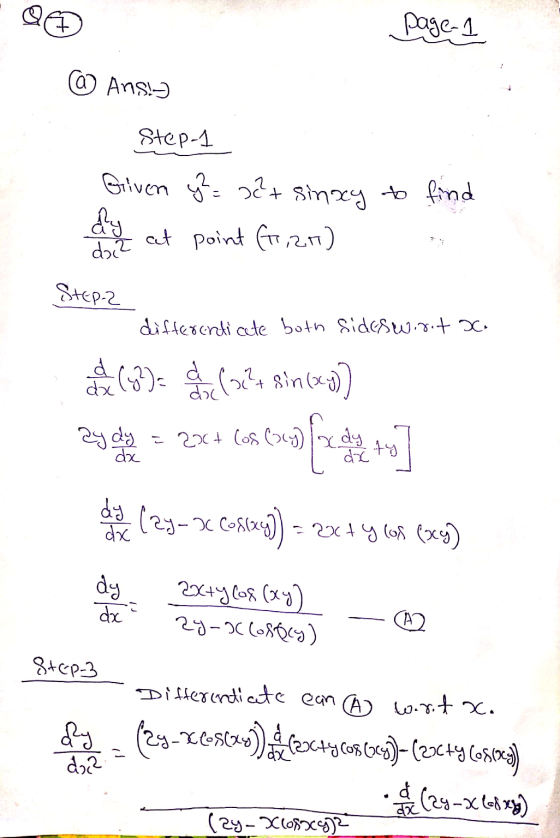 Q 7 Page-1
(a) Ans:→
Step-1
Given y² = x² + sinxy to find
d²y/dx² at point (π, 2π)
Step-2
differentiate both sides w.r.t x.
d/dx (y²) = d/dx (x² + sin(xy))
2y dy/dx = 2x + cos(xy) [x dy/dx + y]
dy/dx (2y - x cos(xy)) = 2x + y cos (xy)
dy/dx = 2x+y cos(xy) / 2y - x cos(xy) — (A)
Step-3
Differentiate eqn (A) w.r.t x.
d²y/dx² = (2y - x cos(xy)) d/dx (2x+y cos(xy)) - (2x+y cos(xy))
· d/dx (2y - x cos xy)
(2y - x cosxy)²